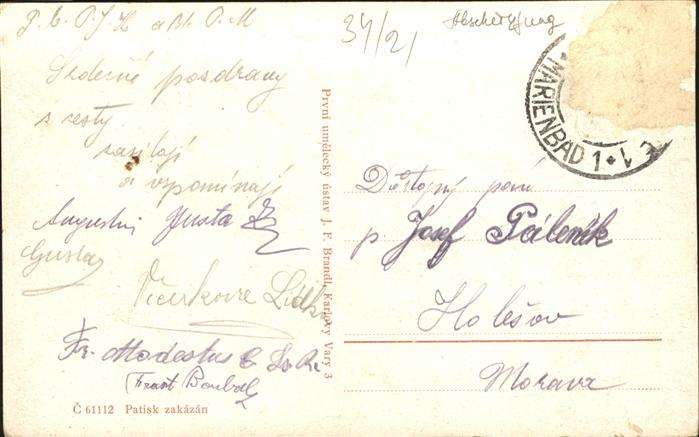 P. L. P. J. K. a Bl. P. M
34/21
Srdečné pozdravy
s cesty
zasílají
a vzpomínají
Augustin Justa
Gusta
Lidka
Fr. Modestus
(Frant
Č 61112 Patisk zakázán
První umělecký ústav J. F. Brandl, Karlovy Vary 3
MARIENBAD 1
Důstojný pan
p. Josef Páleník
Holešov
Morava